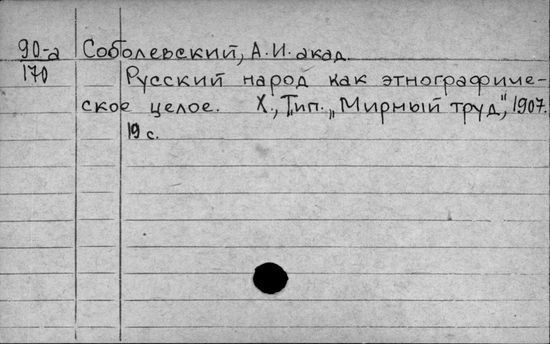 90-а Соболевский, А.И. акад.
170 Русский народ как этнографиче-
ское целое. Х., Тип. „Мирный труд", 1907.
19 с.